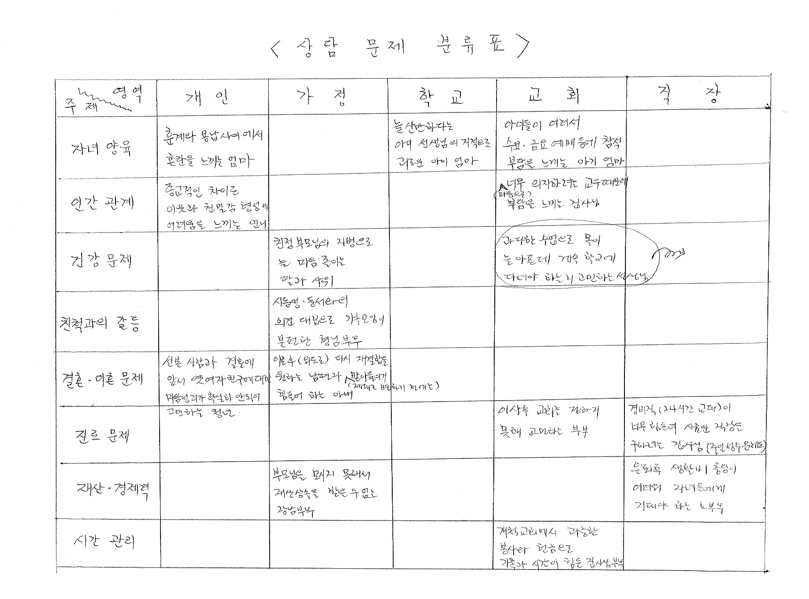 < 상담 문제 분류표 >
영역
주제
개인
가정
학교
교회
직장
자녀 양육
훈계와 용납 사이에서
혼란을 느끼는 엄마
늘 산만하다는
아이 선생님의 지적으로
괴로운 아이 엄마
아이들이 어려서
수요·금요 예배 등에 참석
부담을 느끼는 아기 엄마
인간 관계
종교적인 차이로
이웃과 친밀감 형성에
어려움을 느끼는
너무 의지하려는 교우 때문에
부담을 느끼는 집사님
건강 문제
친정 부모님의 지병으로
늘 마음 졸이는
딸과 사위
과다한 수업으로 목이
늘 아픈데 계속 학교에
다녀야 하는지 고민하는 선생님
친척과의 갈등
시동생·동서와의
의견 대립으로 가족모임이
불편한 형님부부
결혼·이혼 문제
선본 사람과 결혼에
앞서 옛 여자친구에 대한
마음정리가 확실히 안되어
고민하는 청년
이혼 후 (외도로) 다시 재결합을
원하는 남편과 받아들이기
힘들어 하는 아내
진로 문제
이사 후 교회를 정하지
못해 고민하는 부부
경비직 (24시간 교대)이
너무 힘들어 새로운 직장을
구하려는 집사님
재산·경제력
부모님을 모시지 못해서
재산상속을 받을 수 없는
장남부부
은퇴 후 생활비 충당이
어려워 자녀들에게
기대야 하는 노부부
시간 관리
개척교회에서 과중한
봉사와 헌금으로
가족과 시간이 힘든 집사님부부